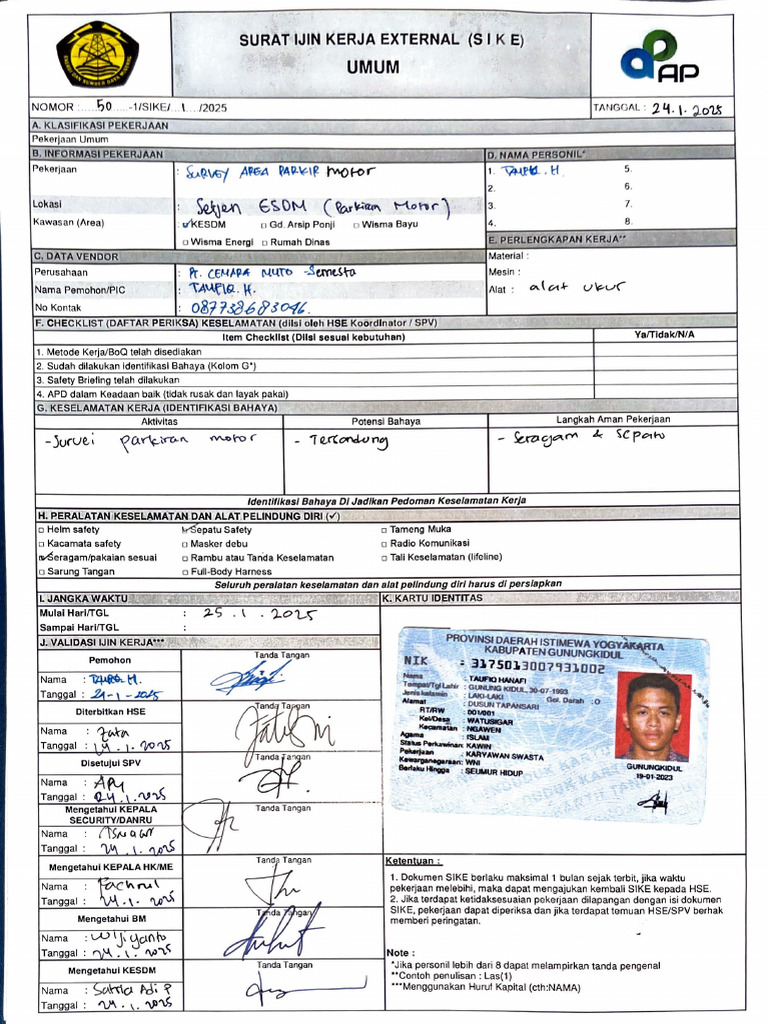 SURAT IJIN KERJA EXTERNAL (S I K E)
UMUM
ENERGI DAN SUMBER DAYA MINERAL
AP
NOMOR : .....50.....-1/SIKE/...1..../2025
TANGGAL : 24.1.2025
A. KLASIFIKASI PEKERJAAN
Pekerjaan Umum
B. INFORMASI PEKERJAAN
Pekerjaan : SURVEY AREA PARKIR motor
Lokasi : Setjen ESDM (Parkiran Motor)
Kawasan (Area) : ✓KESDM □ Gd. Arsip Ponji □ Wisma Bayu
□ Wisma Energi □ Rumah Dinas
D. NAMA PERSONIL*
1. TAUFIQ. H. 5.
2. 6.
3. 7.
4. 8.
C. DATA VENDOR
Perusahaan : PT. CEMARA MUTO -Semesta
Nama Pemohon/PIC : TAUFIQ. H.
No Kontak : 087738683046.
E. PERLENGKAPAN KERJA**
Material :
Mesin :
Alat : alat ukur
F. CHECKLIST (DAFTAR PERIKSA) KESELAMATAN (diisi oleh HSE Koordinator / SPV)
Item Checklist (Diisi sesuai kebutuhan) Ya/Tidak/N/A
1. Metode Kerja/BoQ telah disediakan
2. Sudah dilakukan identifikasi Bahaya (Kolom G*)
3. Safety Briefing telah dilakukan
4. APD dalam Keadaan baik (tidak rusak dan layak pakai)
G. KESELAMATAN KERJA (IDENTIFIKASI BAHAYA)
Aktivitas Potensi Bahaya Langkah Aman Pekerjaan
- Survei parkiran motor - Tersandung - Seragam & Sepatu
Identifikasi Bahaya Di Jadikan Pedoman Keselamatan Kerja
H. PERALATAN KESELAMATAN DAN ALAT PELINDUNG DIRI (✓)
□ Helm safety ✓Sepatu Safety □ Tameng Muka
□ Kacamata safety □ Masker debu □ Radio Komunikasi
✓Seragam/pakaian sesuai □ Rambu atau Tanda Keselamatan □ Tali Keselamatan (lifeline)
□ Sarung Tangan □ Full-Body Harness
Seluruh peralatan keselamatan dan alat pelindung diri harus di persiapkan
I. JANGKA WAKTU
Mulai Hari/TGL : 25.1.2025
Sampai Hari/TGL :
J. VALIDASI IJIN KERJA***
Pemohon Tanda Tangan
Nama : TAUFIQ H.
Tanggal : 24-1-2025
Diterbitkan HSE Tanda Tangan
Nama :
Tanggal : 24.1.2025
Disetujui SPV Tanda Tangan
Nama :
Tanggal : 24.1.2025
Mengetahui KEPALA SECURITY/DANRU Tanda Tangan
Nama :
Tanggal : 24.1.2025
Mengetahui KEPALA HK/ME Tanda Tangan
Nama : Fachrul
Tanggal : 24.1.2025
Mengetahui BM Tanda Tangan
Nama : Wijiyanto
Tanggal : 24.1.2025
Mengetahui KESDM Tanda Tangan
Nama : Satria Adi P
Tanggal : 24.1.2025
K. KARTU IDENTITAS
PROVINSI DAERAH ISTIMEWA YOGYAKARTA
KABUPATEN GUNUNGKIDUL
NIK : 3175013007931002
Nama : TAUFIQ HANAFI
Tempat/Tgl Lahir : GUNUNG KIDUL, 30-07-1993
Jenis kelamin : LAKI-LAKI Gol. Darah : O
Alamat : DUSUN TAPANSARI
RT/RW : 001/001
Kel/Desa : WATUSIGAR
Kecamatan : NGAWEN
Agama : ISLAM
Status Perkawinan: KAWIN
Pekerjaan : KARYAWAN SWASTA
Kewarganegaraan: WNI
Berlaku Hingga : SEUMUR HIDUP
GUNUNGKIDUL
19-01-2023
Ketentuan :
1. Dokumen SIKE berlaku maksimal 1 bulan sejak terbit, jika waktu
pekerjaan melebihi, maka dapat mengajukan kembali SIKE kepada HSE.
2. Jika terdapat ketidaksesuaian pekerjaan dilapangan dengan isi dokumen
SIKE, pekerjaan dapat diperiksa dan jika terdapat temuan HSE/SPV berhak
memberi peringatan.
Note :
*Jika personil lebih dari 8 dapat melampirkan tanda pengenal
**Contoh penulisan : Las(1)
***Menggunakan Huruf Kapital (cth:NAMA)